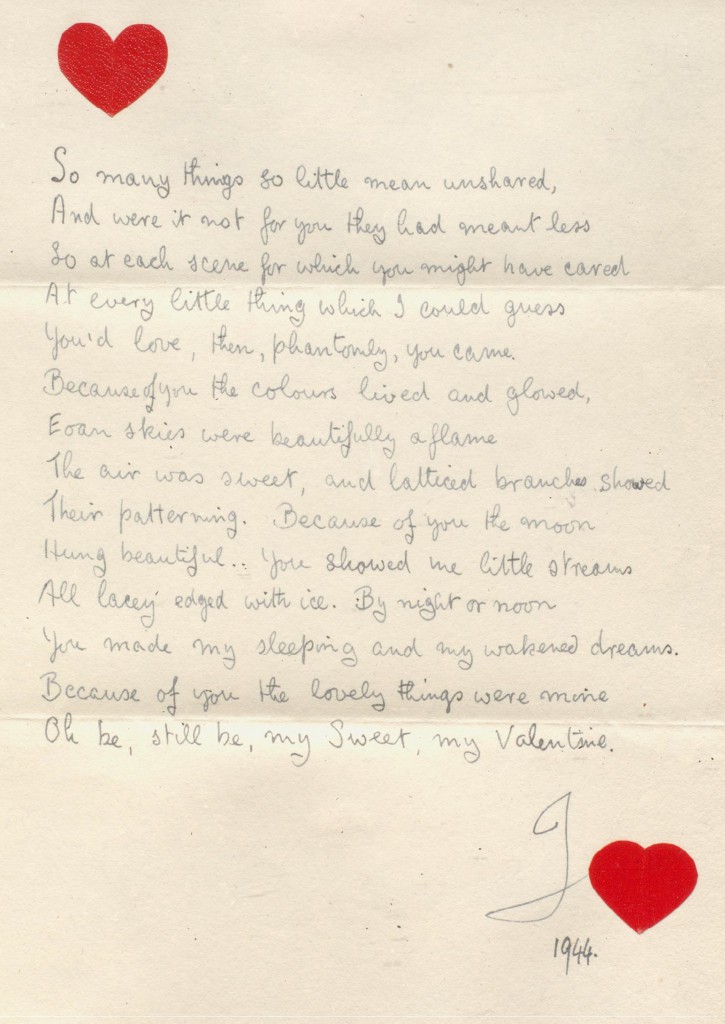 So many things so little mean unshared,
And were it not for you they had meant less
So at each scene for which you might have cared
At every little thing which I could guess
You'd love, then, phantomly, you came.
Because of you the colours lived and glowed,
Eoan skies were beautifully aflame
The air was sweet, and latticed branches showed
Their patterning. Because of you the moon
Hung beautiful.. You showed me little streams
All lacey edged with ice. By night or noon
You made my sleeping and my wakened dreams.
Because of you the lovely things were mine
Oh be, still be, my Sweet, my Valentine.
J
1944.